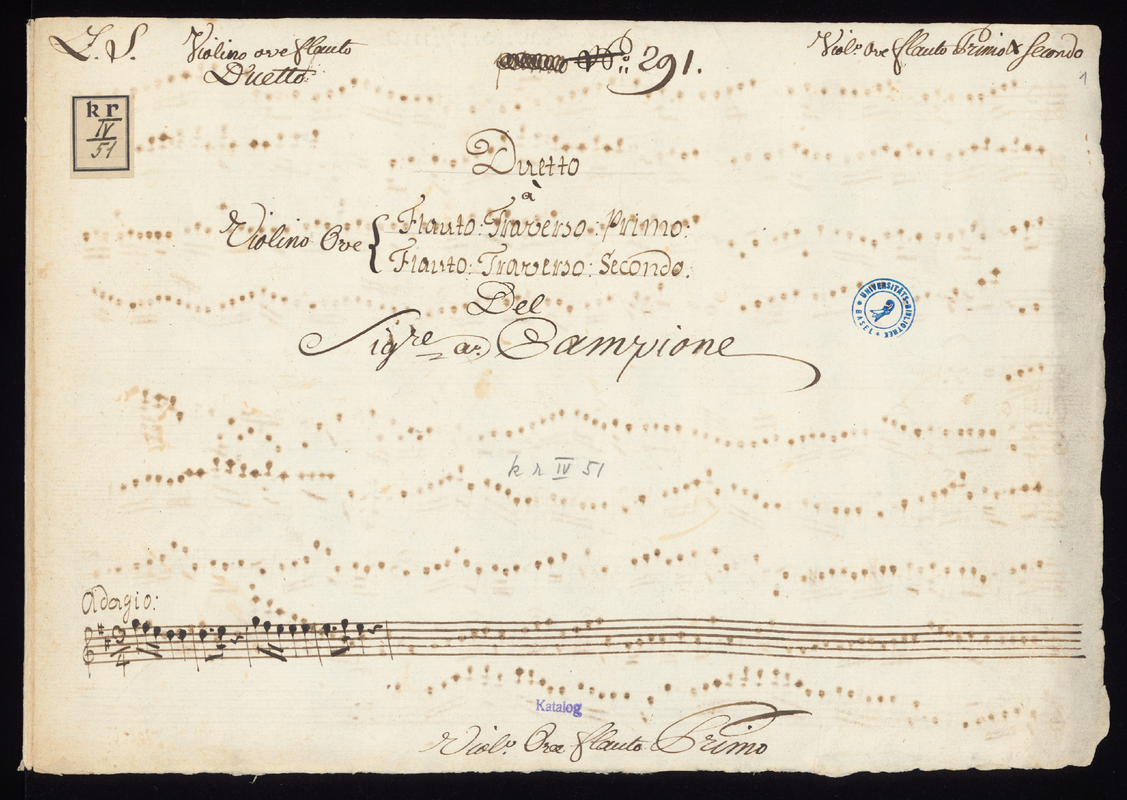 L. S.
Violino ove flauto
Duetto.
No: 291.
Viol:o Ove flauto Primo & Secondo
1
kr
IV
51
Duetto
à
Violino Ove
Flauto: Traverso: Primo:
Flauto: Traverso: Secondo.
Del
Sigre a: Campione
UNIVERSITÄTS-BIBLIOTHEK
BASEL
k r IV 51
Adagio:
3
4
Katalog
Viol:o Ove flauto Primo